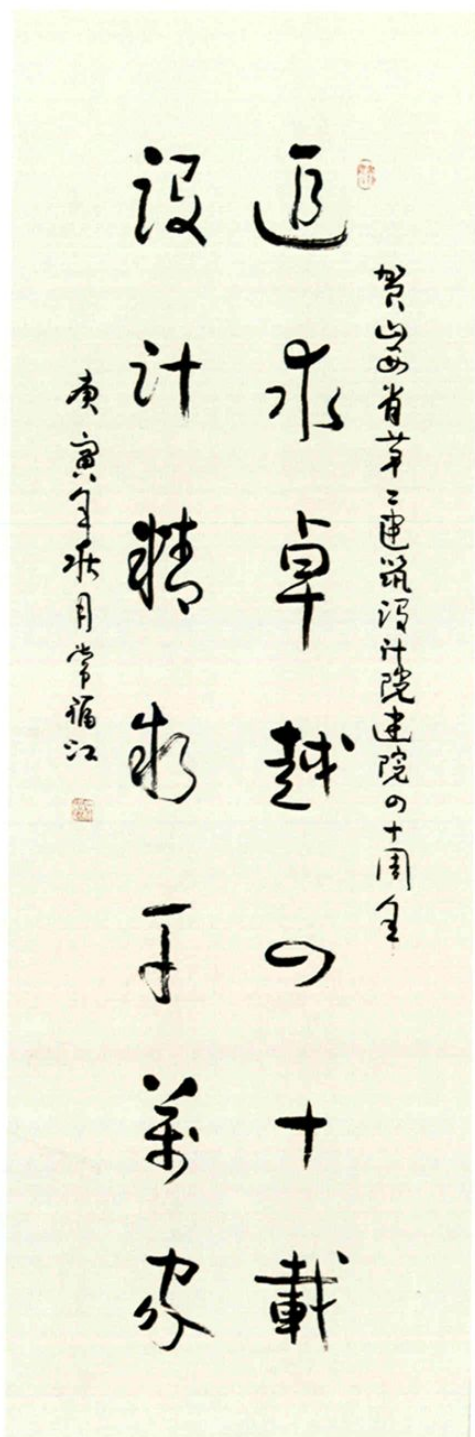 賀山西省第二建筑設計院建院四十周年
追求卓越四十載
設計精彩千萬家
庚寅年秋月常福江